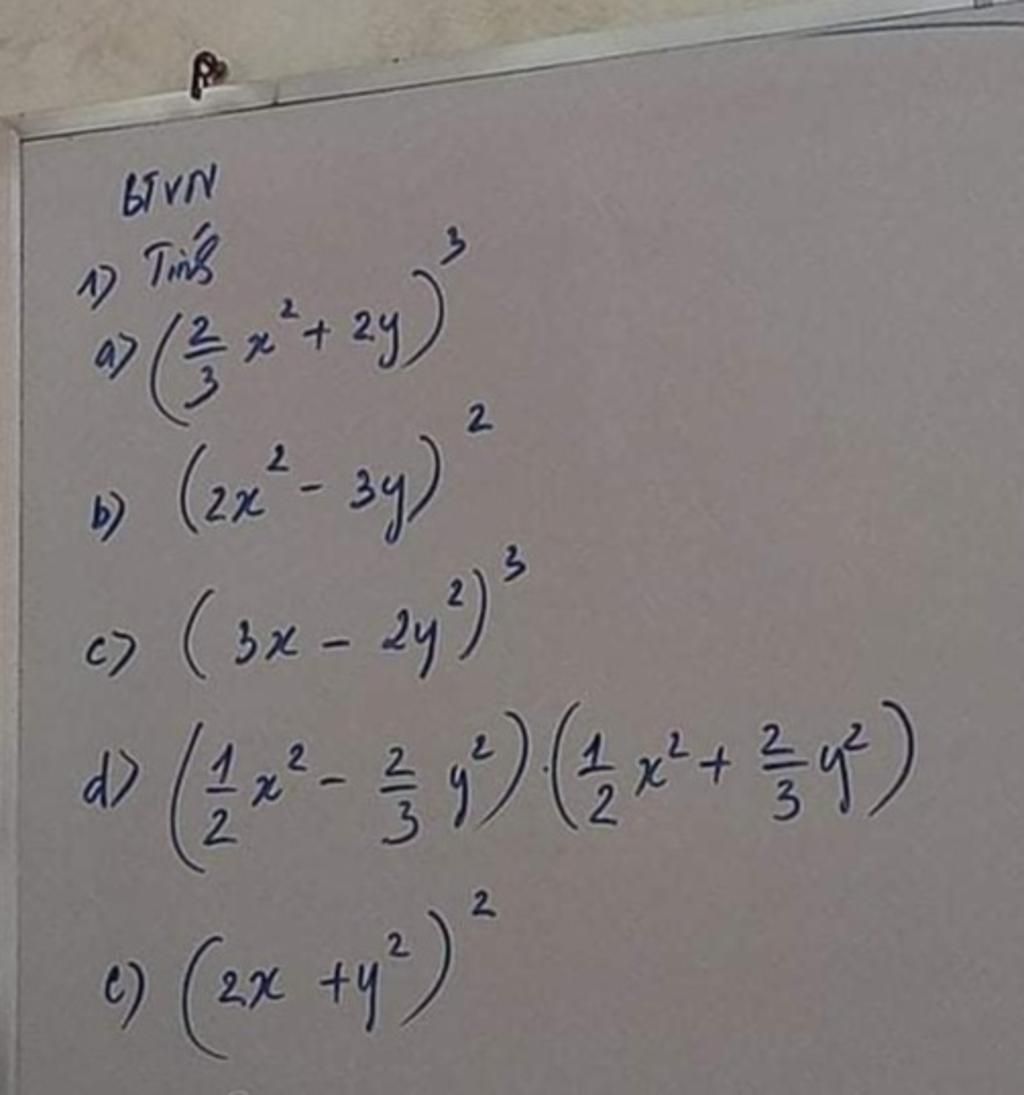 BTVN
1) Tính
a) (2/3 x² + 2y)³
b) (2x² - 3y)²
c) (3x - 2y²)³
d) (1/2 x² - 2/3 y²).(1/2 x² + 2/3 y²)
e) (2x + y²)²